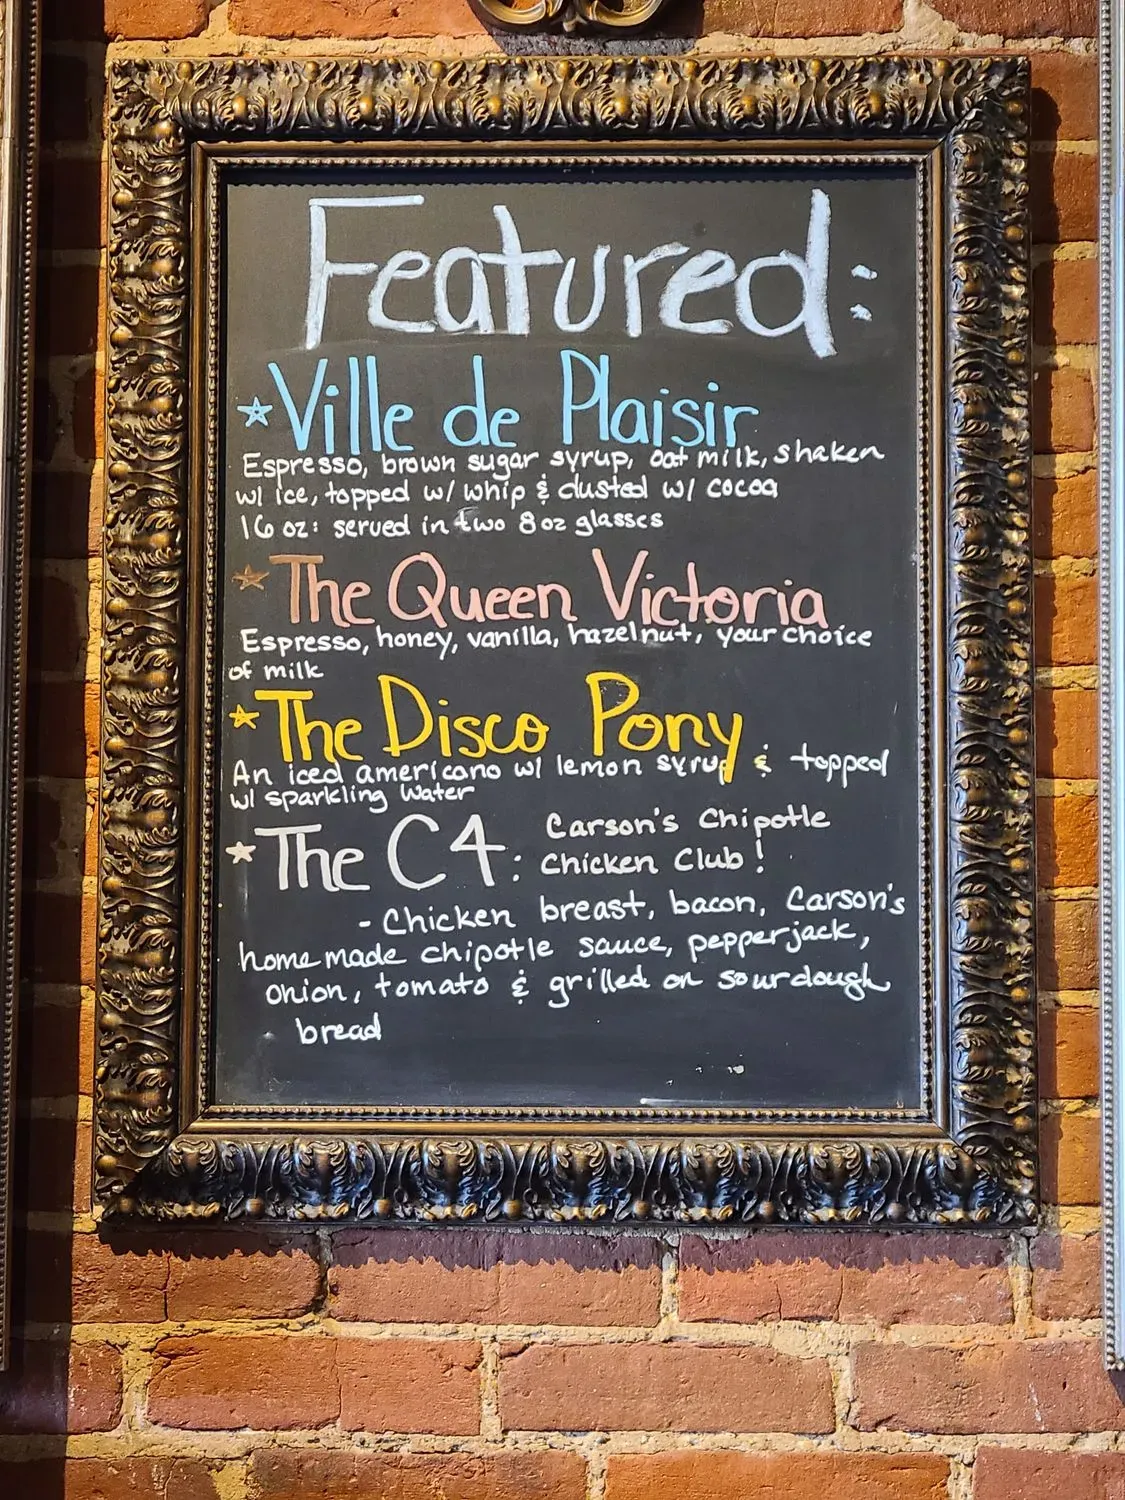 Featured:
Ville de Plaisir
Espresso, brown sugar syrup, oat milk, shaken
w/ ice, topped w/ whip & dusted w/ cocoa
16 oz: served in two 8 oz glasses
The Queen Victoria
Espresso, honey, vanilla, hazelnut, your choice
of milk
The Disco Pony
An iced americano w/ lemon syrup & topped
w/ sparkling water
The C4: Carson's Chipotle
Chicken Club!
- Chicken breast, bacon, Carson's
homemade chipotle sauce, pepperjack,
onion, tomato & grilled on sourdough
bread